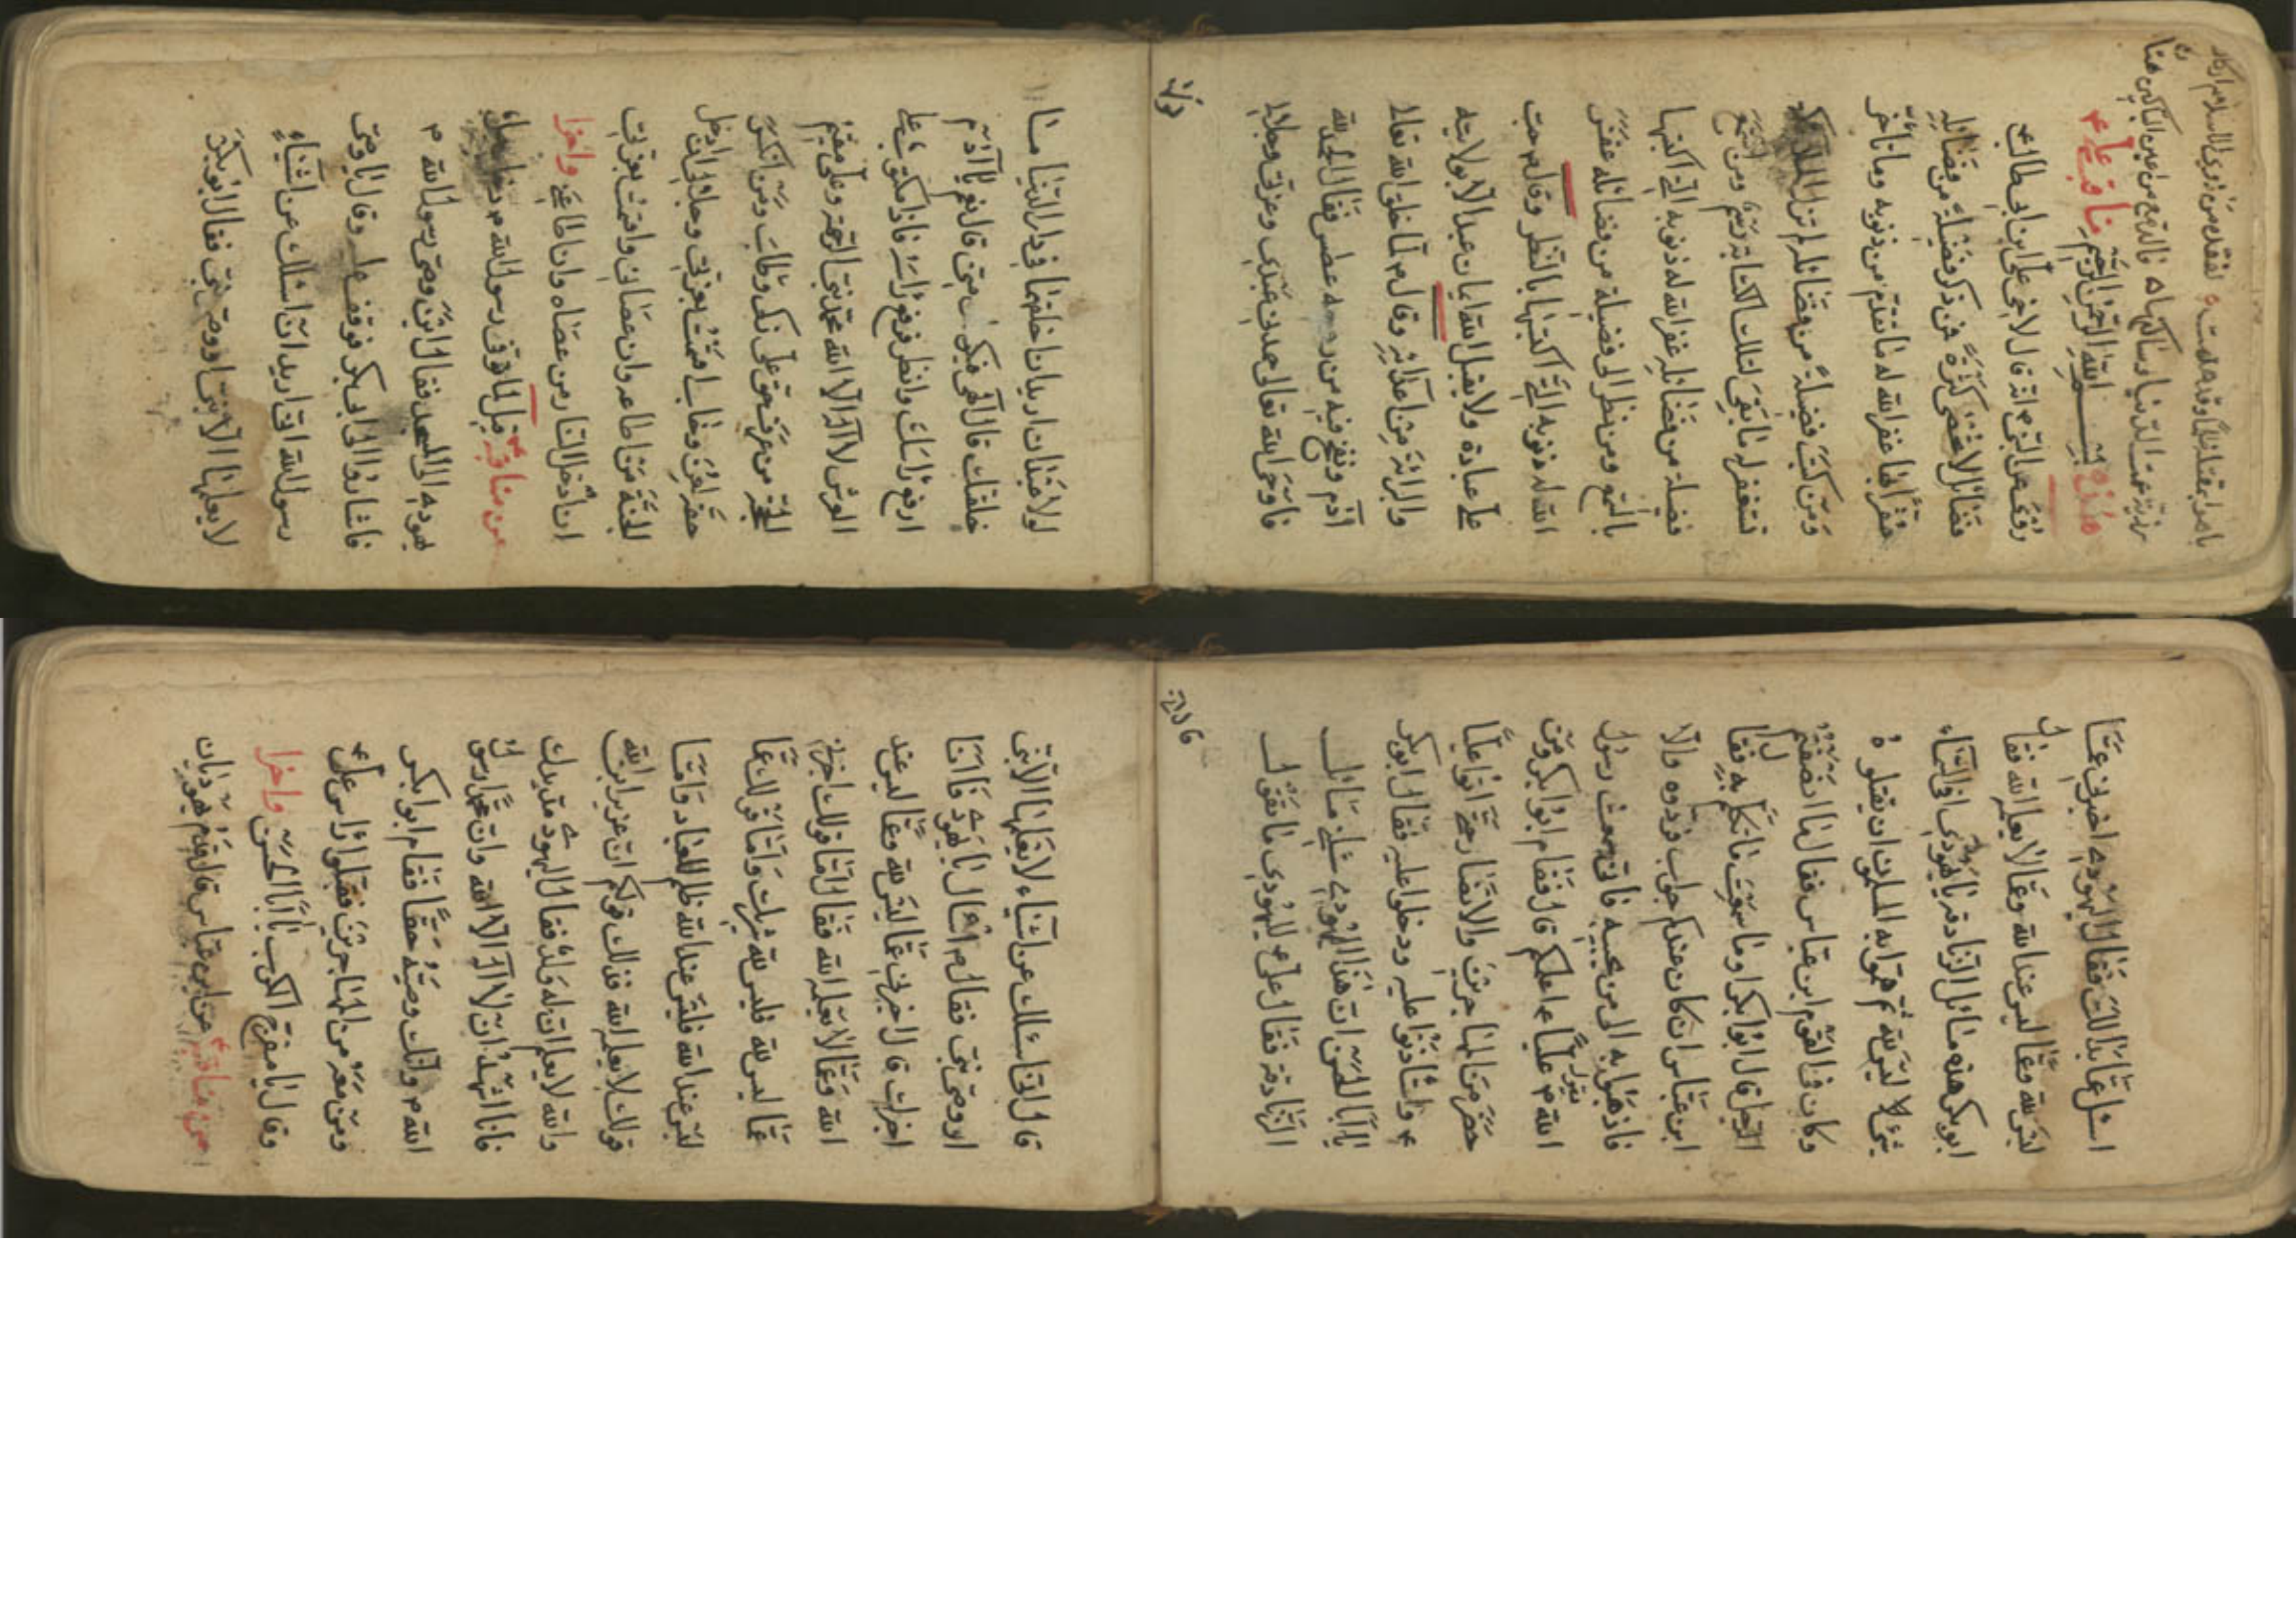 يا من بقضائك
بذريته عمت الدنيا وساكنيها
هذه مناقب علي ع
بسم الله الرحمن الرحيم
رفعه عن النبي ص انه قال لاخي علي ابن ابي طالب ع
فضائل لا تحصى كثرة فمن ذكر فضيلة من فضائله
مقرا بها غفر الله له ما تقدم من ذنوبه وما تأخر
ومن كتب فضيلة من فضائله لم تزل الملائكة
تستغفر له ما بقي لتلك الكتابة رسم ومن استمع
فضيلة من فضائله غفر الله له ذنوبه التي اكتسبها
بالسمع ومن نظر الى فضيلة من فضائله غفر
الله له ذنوبه التي اكتسبها بالنظر وقال ص حب
علي عبادة ولا يقبل الله ايمان عبد الا بولايته
والبرائة من اعدائه وقال ص لما خلق الله تعالى
آدم ونفخ فيه من روحه عطس فقال الحمد لله
فاوحى الله تعالى حمدني عبدي وعزتي وجلالي
لولا عبدان اريد ان اخلقهما في دار الدنيا ما
خلقتك قال الهي فيكونان مني قال نعم يا آدم
ارفع رأسك وانظر فرفع رأسه فاذا مكتوب على
العرش لا اله الا الله محمد نبي الرحمة وعلي مقيم
الحجة من عرف حق علي زكى وطاب ومن انكر
حقه لعن وخاب اقسمت بعزتي وجلالي ان ادخل
الجنة من اطاعه وان عصاني واقسمت بعزتي
ان ادخل النار من عصاه وان اطاعني واخرا
من مناقبه ع قيل لما توفى رسول الله ص دخل
يهودي الى المسجد فقال اين وصي رسول الله ص
فاشاروا الى ابي بكر فوقف عليه وقال يا وصي
رسول الله اني اريد ان اسئلك عن اشياء
لا يعلمها الا نبي او وصي نبي فقال ابو بكر
اسئل عما بدا لك فقال اليهودي اخبرني عما
ليس لله وعما ليس عند الله وعما لا يعلمه الله فقال
ابو بكر هذه مسائل الزنادقة يا يهودي او في السماء
شيء لا ليس لله ثم هموا به المسلمون ان يقتلوه
وكان في القوم ابن عباس فقال لهم ما انصفتم
الرجل قال ابو بكر او ما سمعت ما تكلم به فقال
ابن عباس ان كان عندكم جواب فردوه والا
فاذهبوا به الى من يجيبه فاني سمعت رسول
الله ص يقول علي ع اعلمكم قال فقام ابو بكر ومن
حضر من المهاجرين والانصار حتى اتوا عليا
ع واستأذنوا عليه ودخلوا عليه فقال ابو بكر
يا ابا الحسن ان هذا اليهودي سئلني مسائل
الزنادقة فقال علي ع لليهودي ما تقول
قال اني اسئلك عن اشياء لا يعلمها الا نبي
او وصي نبي فقال له اسئل يا يهودي فانا
اجبرك قال اخبرني عما ليس لله وعما ليس عند
الله وعما لا يعلمه الله فقال اما قولك اخبرني
عما ليس لله فليس لله شريك واما قولك عما
ليس عند الله فليس عند الله ظلم للعباد واما
قولك لا يعلمه الله فذلك قولكم ان عزير ابن الله
والله لا يعلم ان له ولد فقال اليهودي مد يدك
فانا اشهد ان لا اله الا الله وان محمدا رسول
الله ص وانك وصيه حقا فقام ابو بكر
ومن معه من المهاجرين فقبلوا رأس علي ع
وقال يا مفرج الكرب يا ابا الحسن واخرا
من مناقبه ع عن ابن عباس قال قدم يهوديان